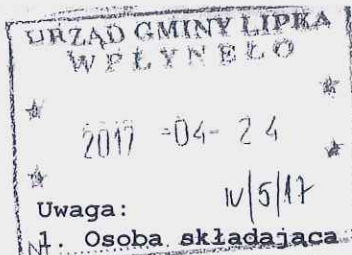 URZĄD GMINY LIPKA
WPŁYNĘŁO
2017 -04- 24
IV/5/17
Uwaga:
Nr
1. Osoba składająca